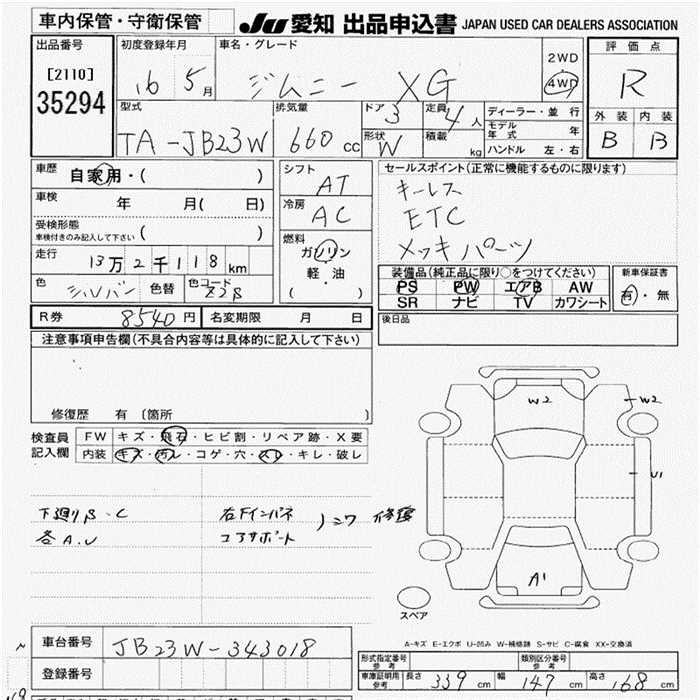 車内保管・守衛保管
JU 愛知 出品申込書 JAPAN USED CAR DEALERS ASSOCIATION
出品番号
[2110]
35294
初度登録年月
16 5月
車名・グレード
ジムニー XG
2WD
4WD
評価点
R
外装 内装
B B
型式
TA-JB23W
排気量
660cc
ドア 3
形状 W
定員 4人
積載 kg
ディーラー・並行
モデル年式 年
ハンドル 左・右
車歴 自家用・( )
車検 年 月( 日)
受検形態
車検付きのみ記入して下さい ( )
走行 13万2千118km
色 シルバー 色替 色コード Z2S
シフト AT
冷房 AC
燃料
ガソリン
軽・油
( )
セールスポイント(正常に機能するものに限ります)
キーレス
ETC
メッキパーツ
装備品(純正品に限り○をつけてください)
PS PW エアB AW
SR ナビ TV カワシート
新車保証書
有・無
R券 8540円 名変期限 月 日
後日品
注意事項申告欄(不具合内容等は具体的に記入して下さい)
修復歴 有 〔箇所 〕
検査員記入欄
FW キズ・飛石・ヒビ割・リペア跡・X要
内装 キズ・汚レ・コゲ・穴・スレ・キレ・破レ
下廻りS.C
各A.U
右下インパネ
コアサポート
シワ 修復
W2
W2
U1
A1
スペア
A-キズ E-エクボ U-凹み W-補修跡 S-サビ C-腐食 XX-交換済
車台番号 JB23W-343018
登録番号
形式指定番号 参考
類別区分番号 参考
車庫証明用 参考 長さ 339cm 幅 147cm 高さ 168cm